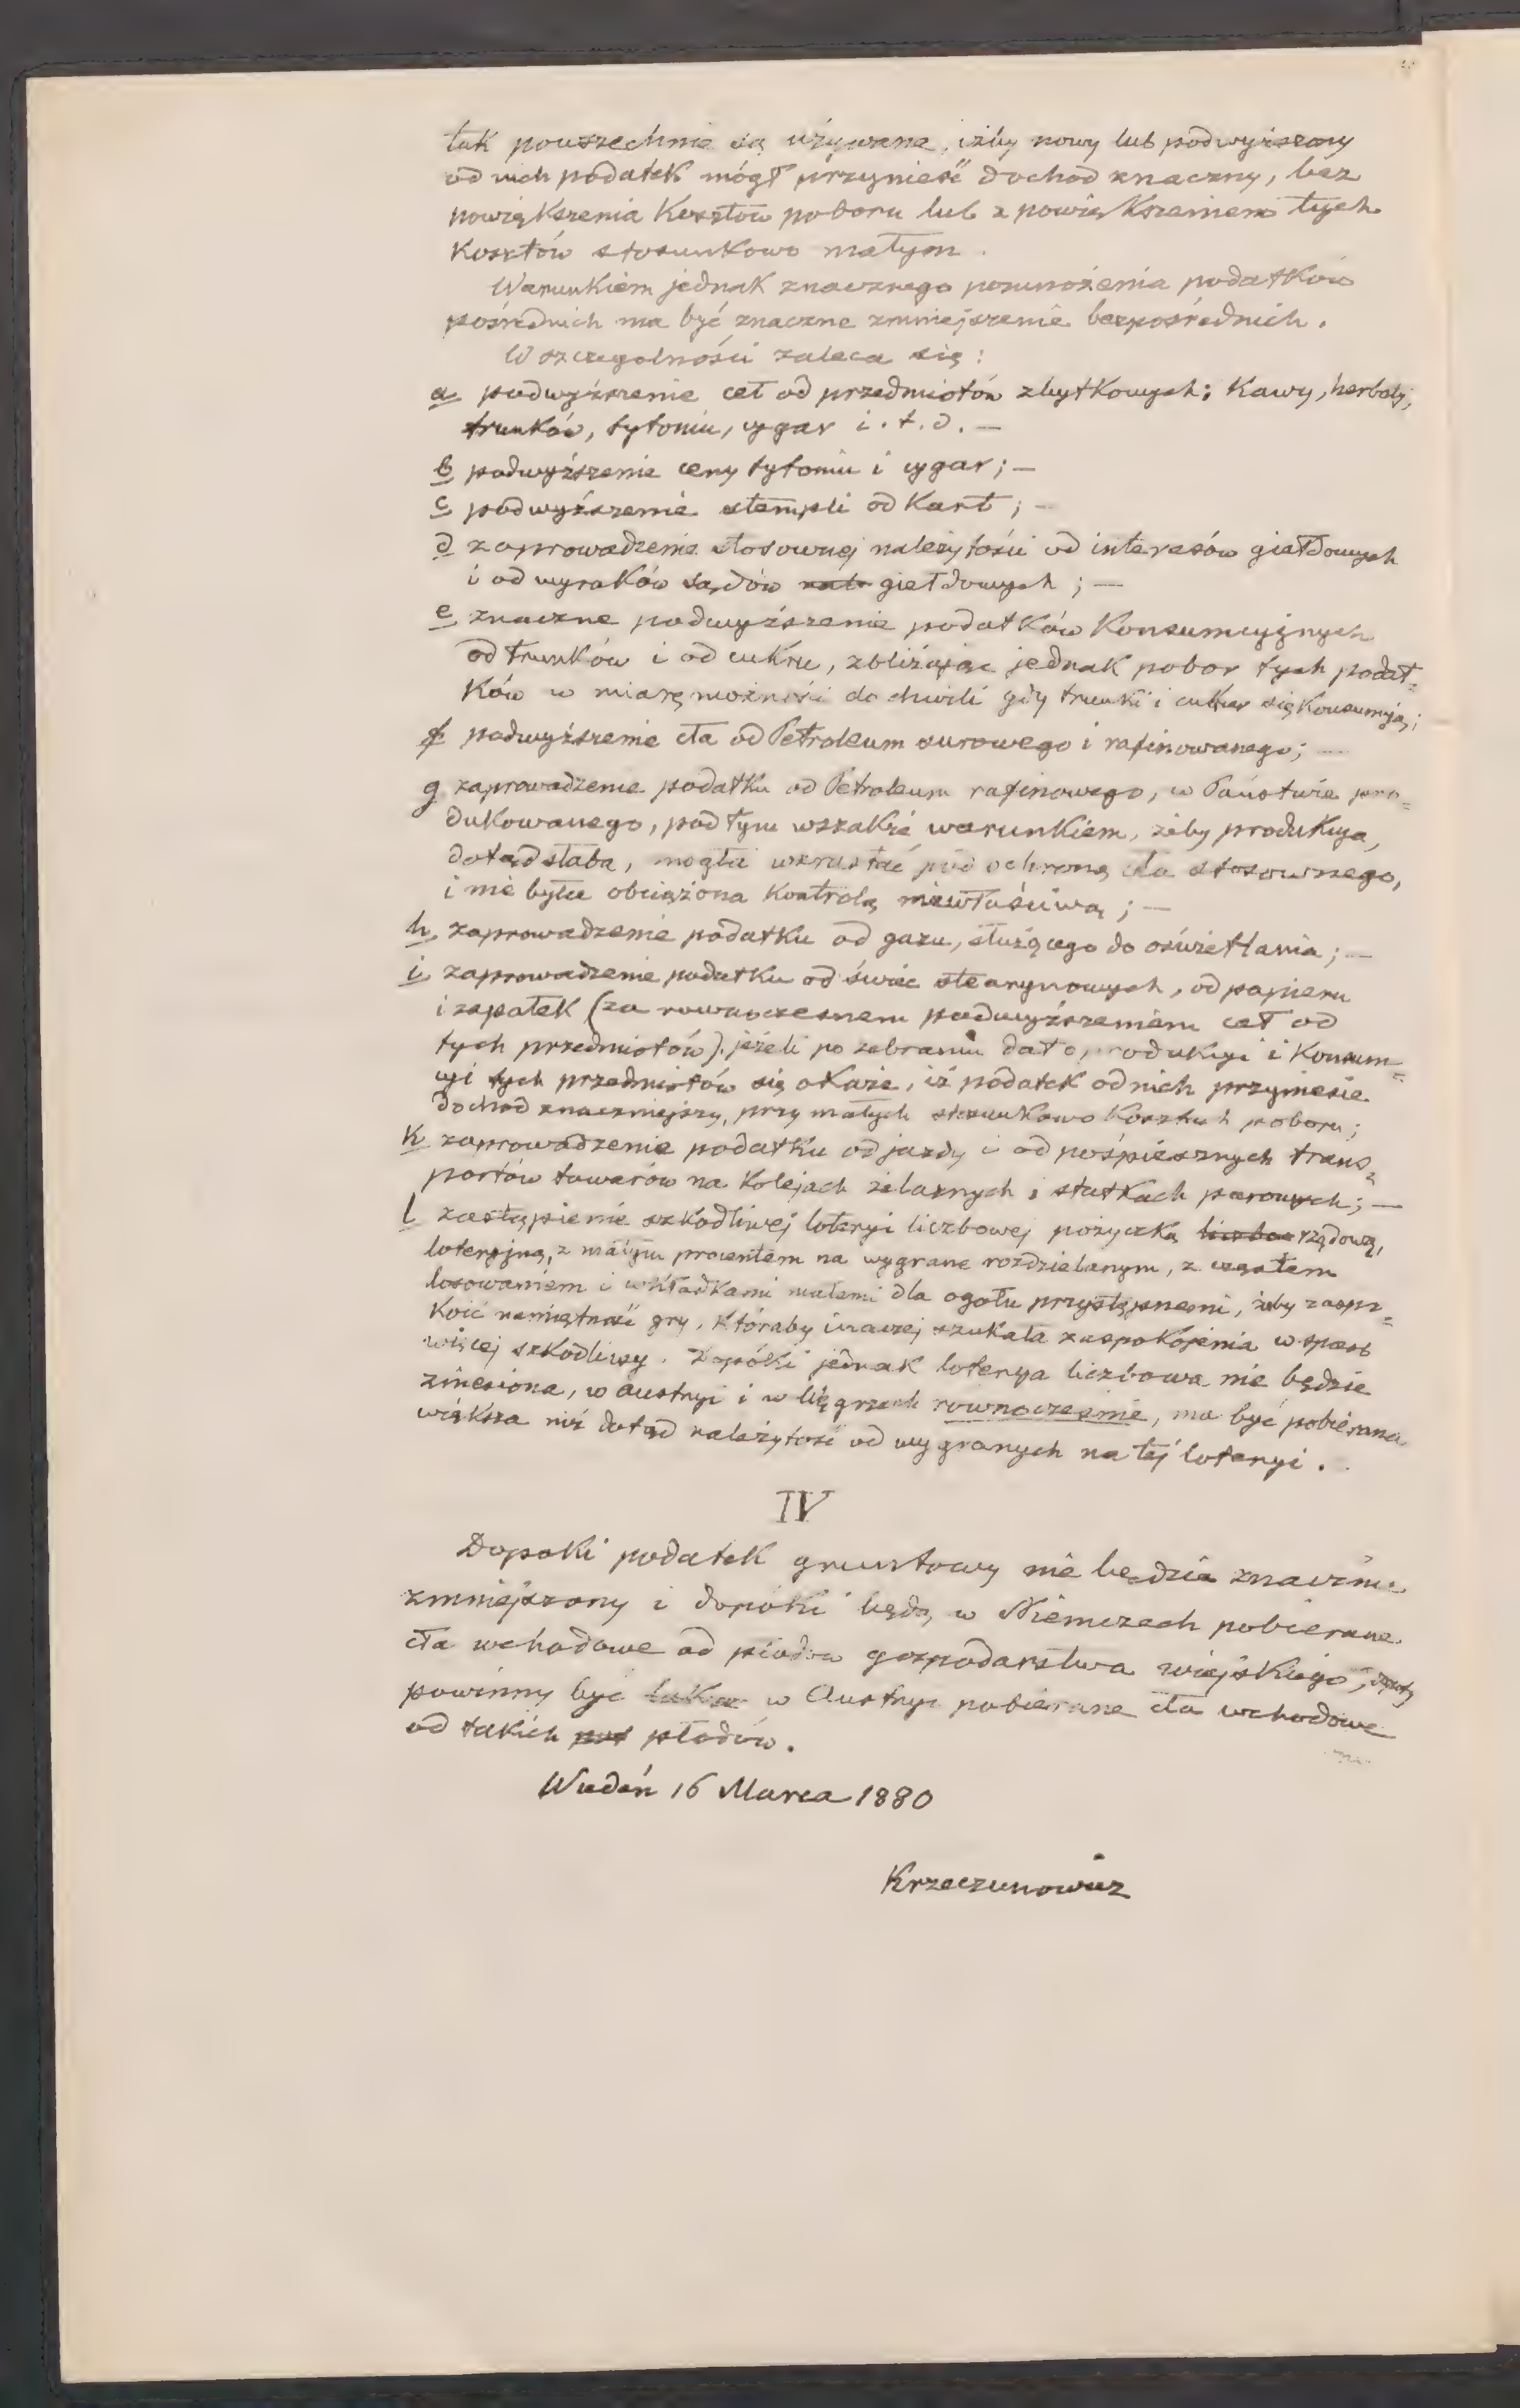 tak powszechnie są używane, iżby nowy lub podwyższony
od nich podatek mógł przynieść dochod znaczny, bez
powiększenia Kosztów poboru lub z powiększeniem tych
Kosztów stosunkowo małym.
Warunkiem jednak znacznego pomnożenia podatków
pośrednich ma być znaczne zmniejszenie bezpośrednich.
W szczegolności zaleca się:
a podwyższenie ceł od przedmiotów zbytkowych: Kawy, herbaty,
trunków, tytoniu, cygar i.t.d. —
b podwyższenie ceny tytoniu i cygar; —
c podwyższenie stempli od Kart; —
d zaprowadzenie stosownej należytości od interesów giełdowych
i od wyroków sądów giełdowych; —
e znaczne podwyższenie podatków Konsumcyjnych
od trunków i od cukru, zbliżając jednak pobor tych podat=
Ków w miarę możności do chwili gdy trunki i cukier się Konsumują;
f podwyższenie cła od Petroleum surowego i rafinowanego; —
g zaprowadzenie podatku od Petroleum rafinowego, w Państwie pro=
dukowanego, pod tym wszakże warunkiem, żeby produkcya,
dotąd słaba, mogła wzrastać pod ochroną cła stosownego,
i nie była obciążona Kontrolą niewłaściwą; —
h zaprowadzenie podatku od gazu, służącego do oświetlania; —
i zaprowadzenie podatku od świec stearynowych, od papieru
i zapałek (za rownoczesnem podwyższeniem ceł od
tych przedmiotów), jeżeli po zebraniu dat o produkcyi i Konsum=
cyi tych przedmiotów się oKaże, iż podatek od nich przyniesie
dochod znaczniejszy, przy małych stosunkowo Kosztach poboru;
K zaprowadzenie podatku od jazdy i od pośpiesznych trans=
portów towarów na Kolejach żelaznych i statkach parowych; —
l zastąpienie szkodliwej loteryi liczbowej pożyczką rządową,
loteryjną, z małym procentem na wygrane rozdzielanym, z częstem
losowaniem i wkładkami małemi dla ogołu przystępnemi, żeby zaspo=
Koić namiętność gry, któraby inaczej szukała zaspokojenia w sposob
więcej szkodliwy. Dopóki jednak loterya liczbowa nie będzie
zniesiona, w Austryi i w Węgrzech rownocześnie, ma być pobierana
większa niż dotąd należytość od wygranych na tej loteryi.
IV
Dopoki podatek gruntowy nie będzie znacznie
zmniejszony i dopóki będą w Niemczech pobierane
cła wchodowe od płodów gospodarstwa wiejskiego,
powinny być w Austryi pobierane cła wchodowe
od takich płodów.
Wiedeń 16 Marca 1880
Krzeczunowicz